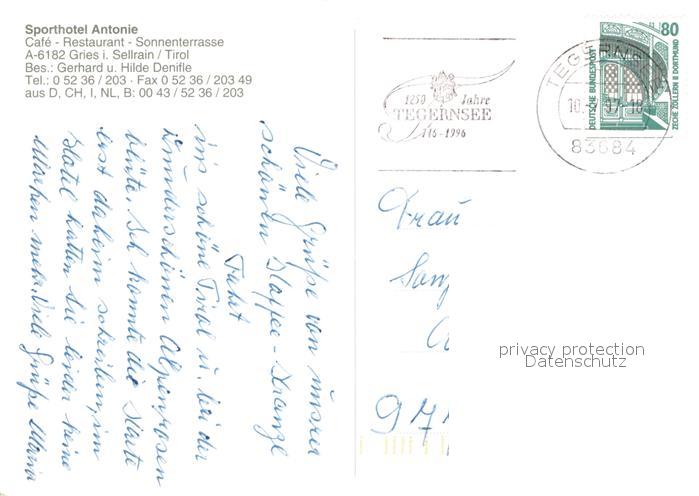 Sporthotel Antonie
Café - Restaurant - Sonnenterrasse
A-6182 Gries i. Sellrain / Tirol
Bes.: Gerhard u. Hilde Denifle
Tel.: 0 52 36 / 203 - Fax 0 52 36 / 203 49
aus D, CH, I, NL, B: 00 43 / 52 36 / 203
1250 Jahre
TEGERNSEE
746-1996
TEGERNSEE
10.
83684
80
DEUTSCHE BUNDESPOST
ZECHE ZOLLERN II DORTMUND
Viele Grüße von unsrer
schönen Kaffee-Kranzl
Fahrt
ins schöne Tirol u. bei der
wunderschönen Alpenrosen
blüte. Ich konnte die Karte
erst daheim schreiben, im
Hotel hatten sie leider keine
Marken mehr. Viele Grüße Maria
Frau
privacy protection
Datenschutz